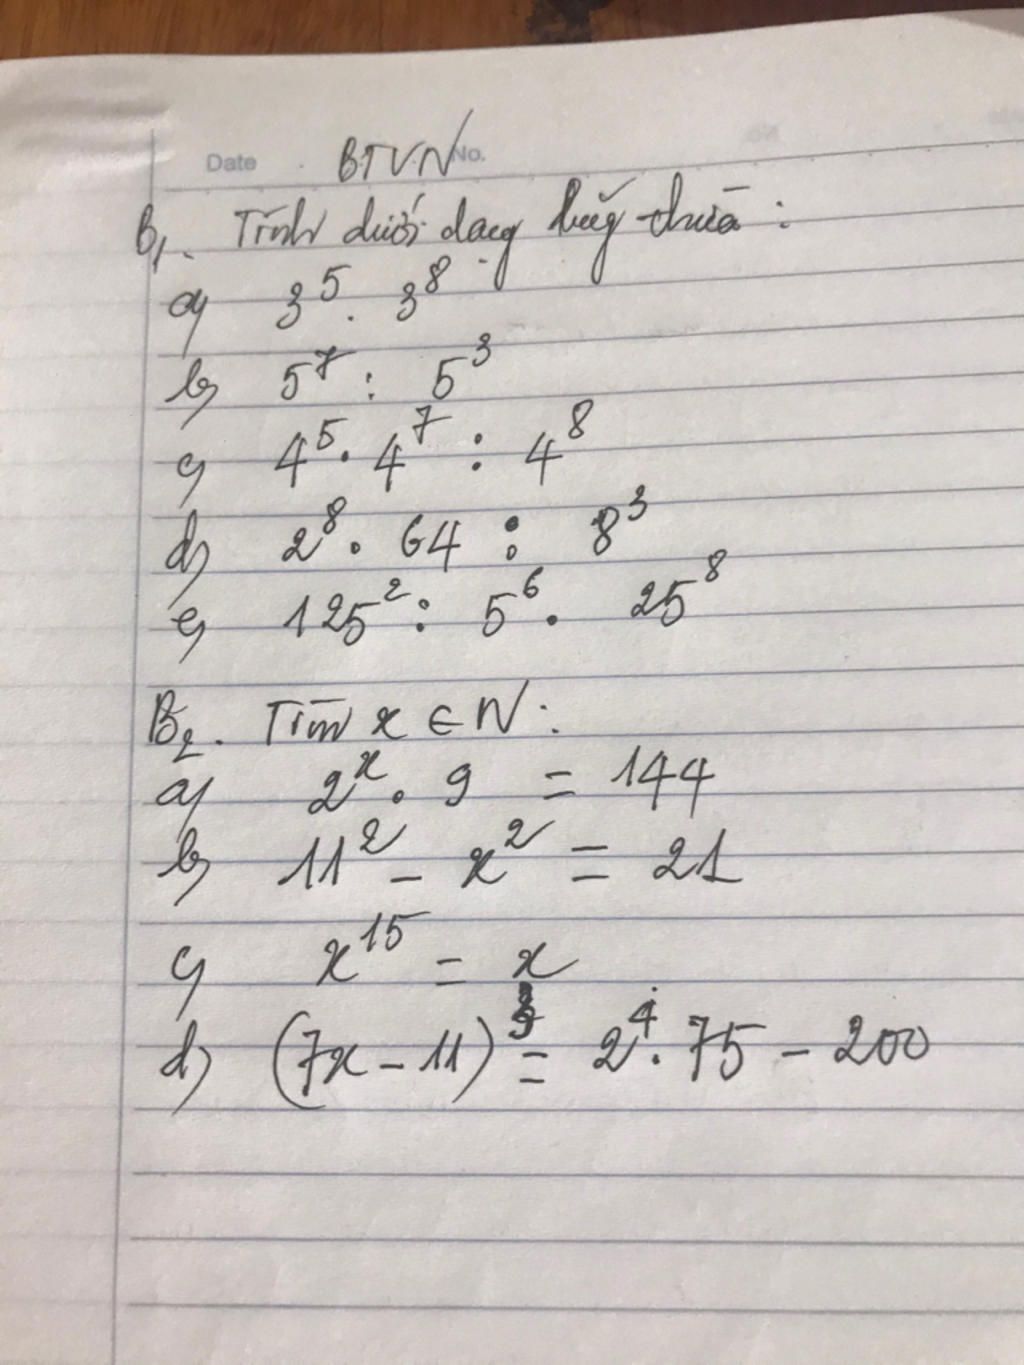 Date BTVN No.
B₁. Tính dưới dạng luỹ thừa :
a) 3⁵ . 3⁸
b) 5⁷ : 5³
c) 4⁵ . 4⁷ : 4⁸
d) 2⁸ . 64 : 8³
e) 125² : 5⁶ . 25⁸
B₂. Tìm x ∈ N :
a) 2ˣ . 9 = 144
b) 11² - x² = 21
c) x¹⁵ = x
d) (7x - 11)³ = 2⁴ . 75 - 200